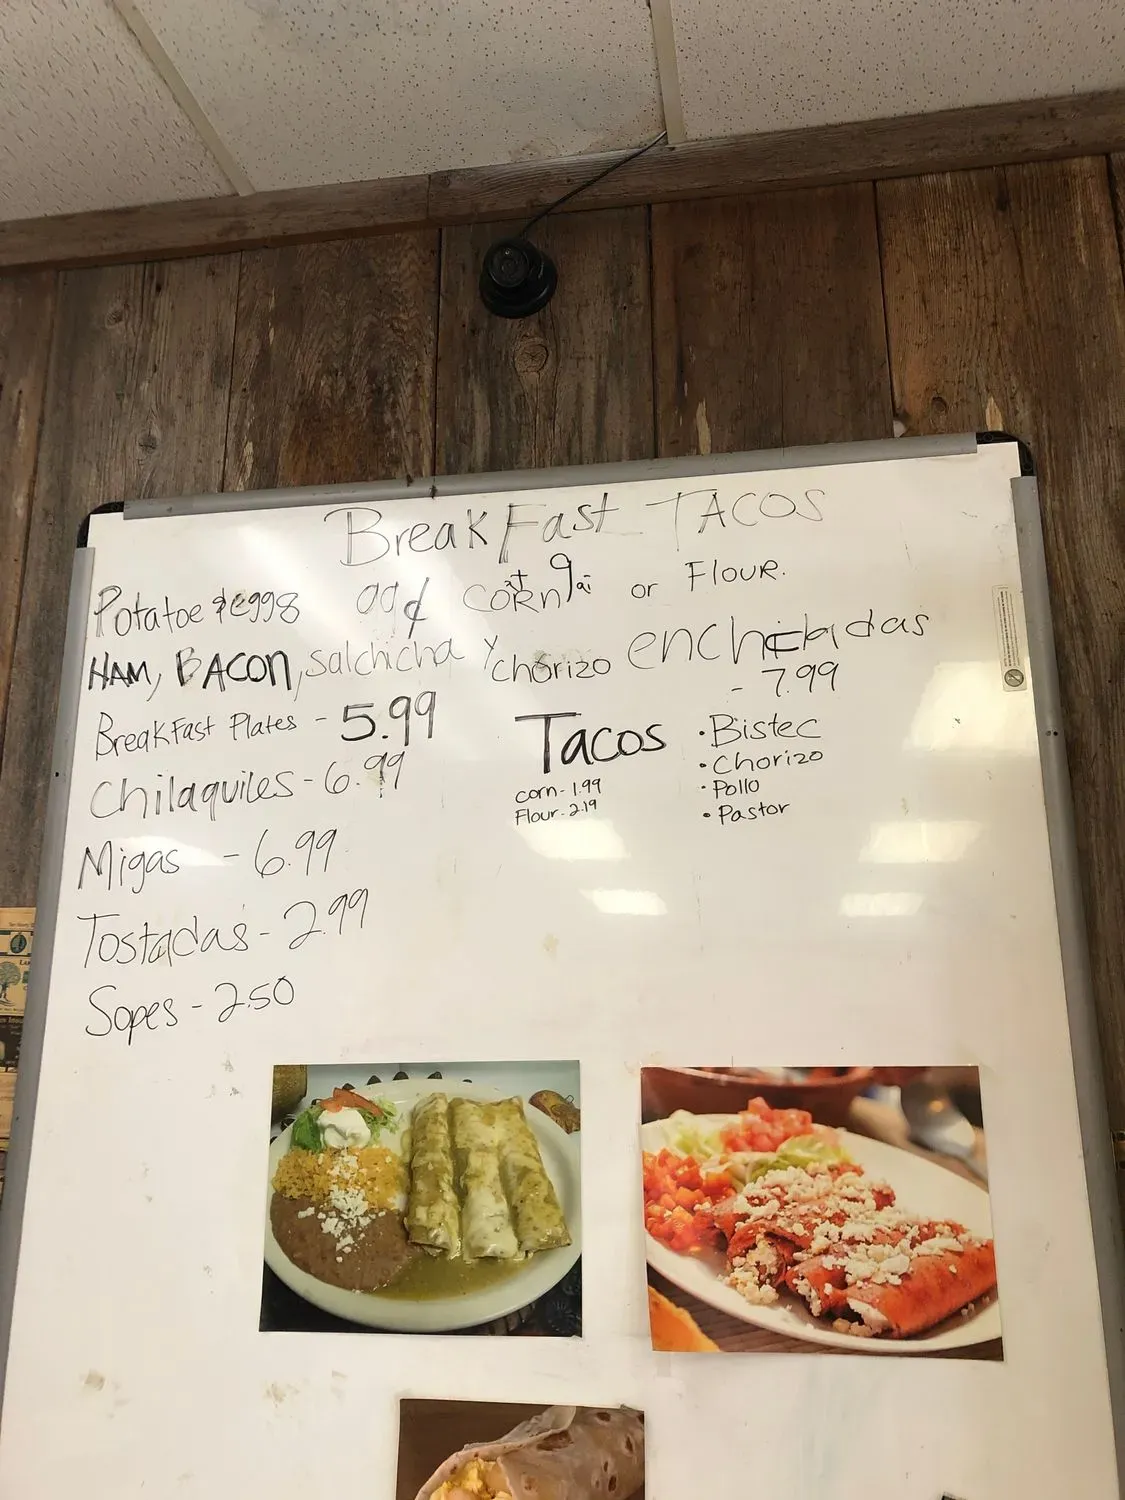 BreakFast TACOS
Potatoe & eggs 99¢ CORN or Flour.
HAM, BACON, Salchicha y Chorizo
enchiladas
- 7.99
BreakFast Plates - 5.99
Chilaquiles - 6.99
Migas - 6.99
Tostadas - 2.99
Sopes - 2.50
Tacos
corn - 1.99
Flour - 2.19
• Bistec
• Chorizo
• Pollo
• Pastor